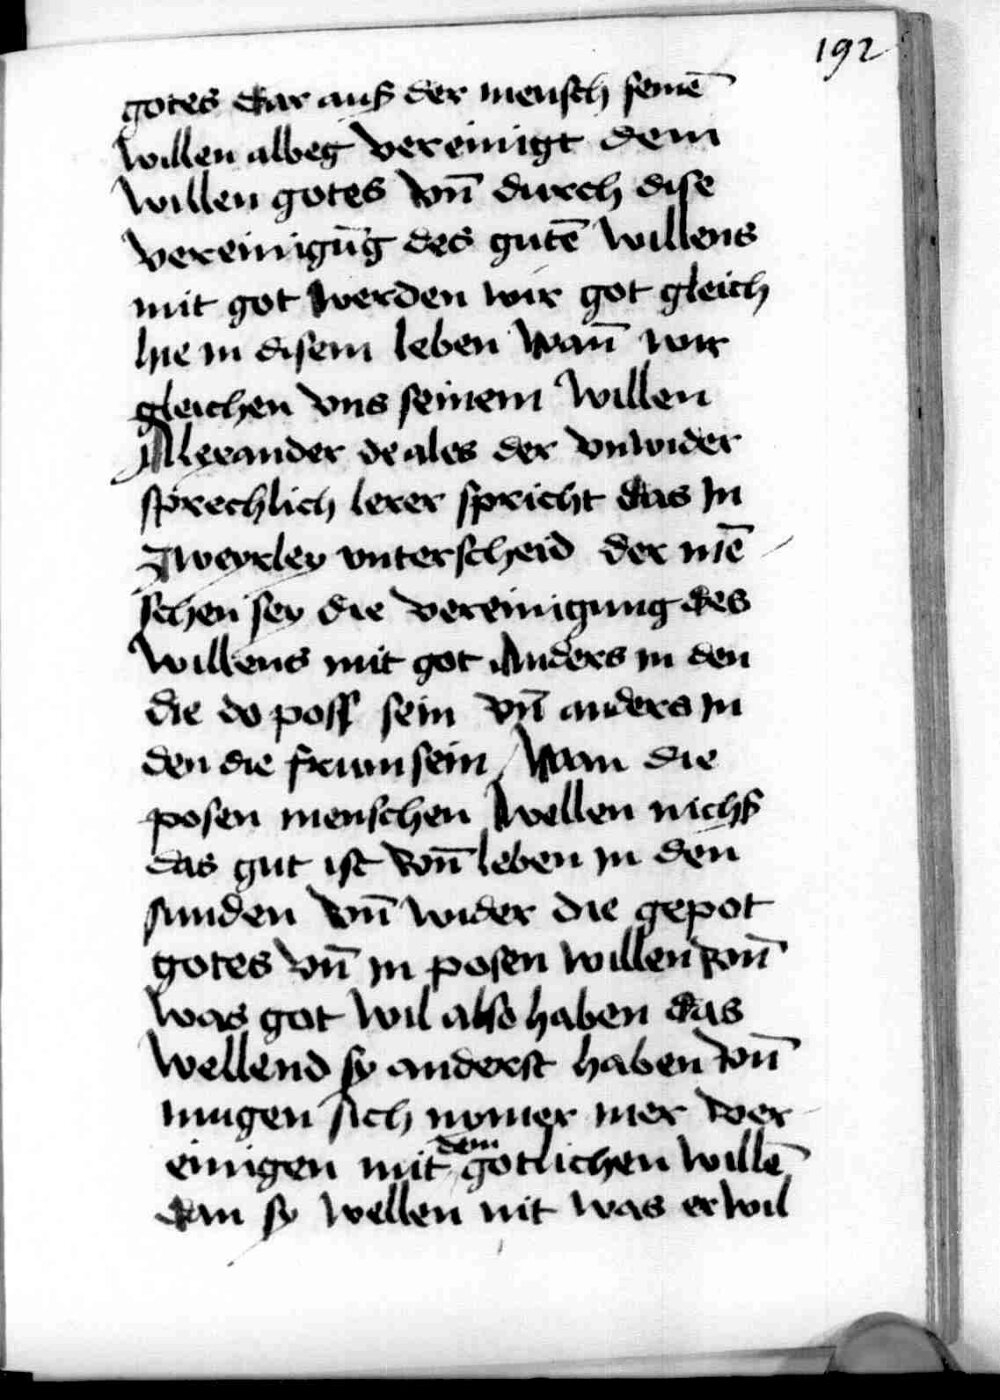 192
gotes dar auß der mensch seinē
willen albeg vereinigt dem
willen gotes vn̄ durch dise
vereinigūg des gutē willens
mit got werden wir got gleich
hie in disem leben wan̄ wir
gleichen vns seinem willen
Alexander de ales der vnwider
sprechlich lerer spricht das in
zweyrley vnterscheid der mē
schen sey die vereinigung des
willens mit got Anders in den
die do poss sein vn̄ anders in
den die frum sein Wan die
posen menschen wellen nichß
das gut ist vn̄ leben in den
sunden vn̄ wider die gepot
gotes vn̄ in posen willen vn̄
was got wil also haben das
wellend sy anderst haben vn̄
mugen sich nymer mer ver
einigen mit dem gotlichen willē
dan sy wellen nit was er wil